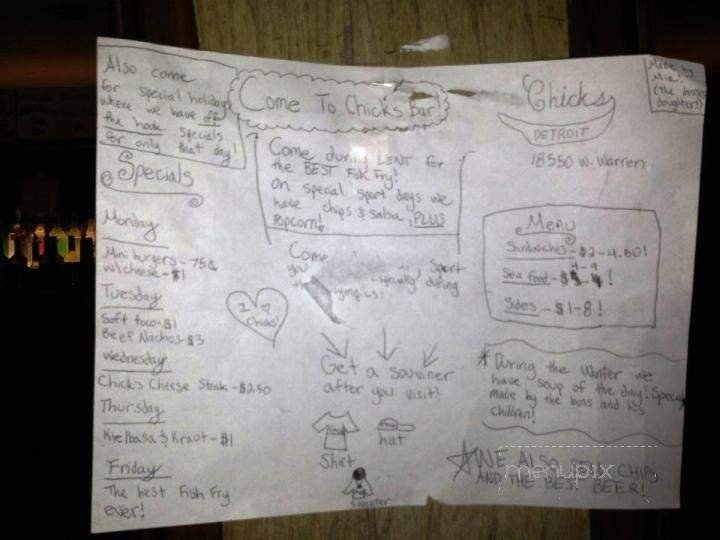 Also come
for special holidays
where we have off
the hook specials
for only that day!
Specials
Monday
Mini burgers - 75¢
w/cheese - $1
Tuesday
Soft taco - $1
Beef Nachos - $3
Wednesday
Chicks Cheese Steak - $2.50
Thursday
Kielbasa & Kraut - $1
Friday
The best Fish Fry
ever!
Come To Chick's Bar!
Come during LENT for
the BEST Fish Fry!
On special sport days we
have chips & salsa, PLUS
Popcorn!
Come Sport
you especially during
the olympics!
I ♡
Chicks!
Get a souviner
after you visit!
Shirt
hat
Sweater
Made by
Mia!
(the bosses
daughter!)
Chicks
DETROIT
18550 W. Warren
Menu
Sandwiches - $2 - 4.50!
4 - 9
Sea food - $ !
Sides - $1 - 8!
* During the Winter we
have soup of the day! Specially
made by the boss and his
children!
WE ALSO CHIPS
AND THE BEST BEER!
menupix